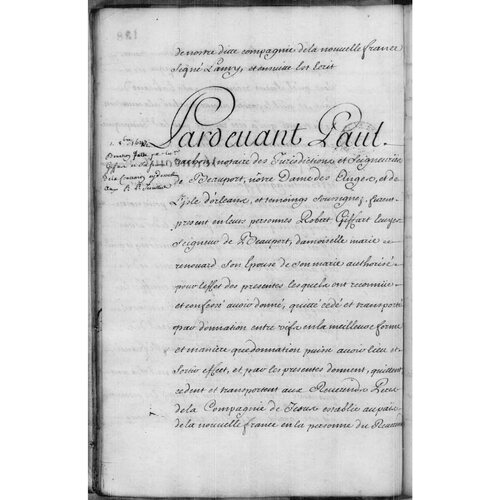 de nostre ditte compagnie de la nouvelle france
signé Lamy, et ensuitte est Ecrit
Pardevant Paul
notaire des Jurisdictions et Seigneuries
de Beauport, nôtre Dame des Anges, et de
L'isle d'orleans, et temoings soussignez, furent
present en leurs personnes Robert Giffart Ecuyer
Seigneur de Beauport, damoiselle marie
renouard son Epouse de son marie authorisé
pour l'effet des presentes lesquels ont reconnu
et confessé avoir donné, quitté cedé et transporté
par donnation entre vifs en la meilleure forme
et maniere que donnation puisse avoir lieu et
sortir effect, et par les presentes donnent, quittent
cedent et transportent aux Reverends Peres
de la Compagnie de Jesus establie au païs
de la nouvelle france en la personne du Reverend